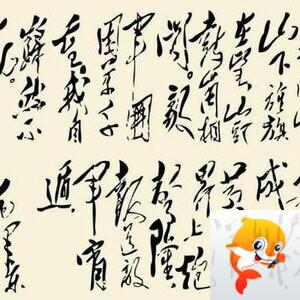 山下旌旗
在望山头
鼓角相
闻。敌
军围
困万千
重我自
岿然不
动。
成
黄
界上炮
声隆
报道敌
军宵
遁
毛泽东